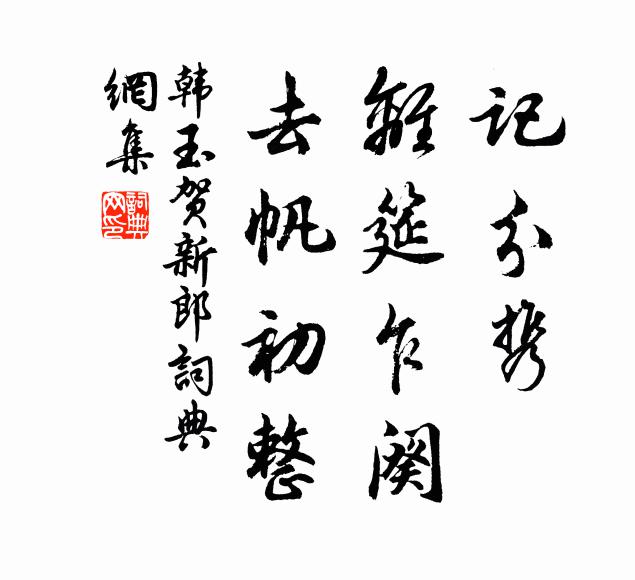 记分携
離筵乍阕
去帆初整
韩玉贺新郎詞典
網集
詞典网印